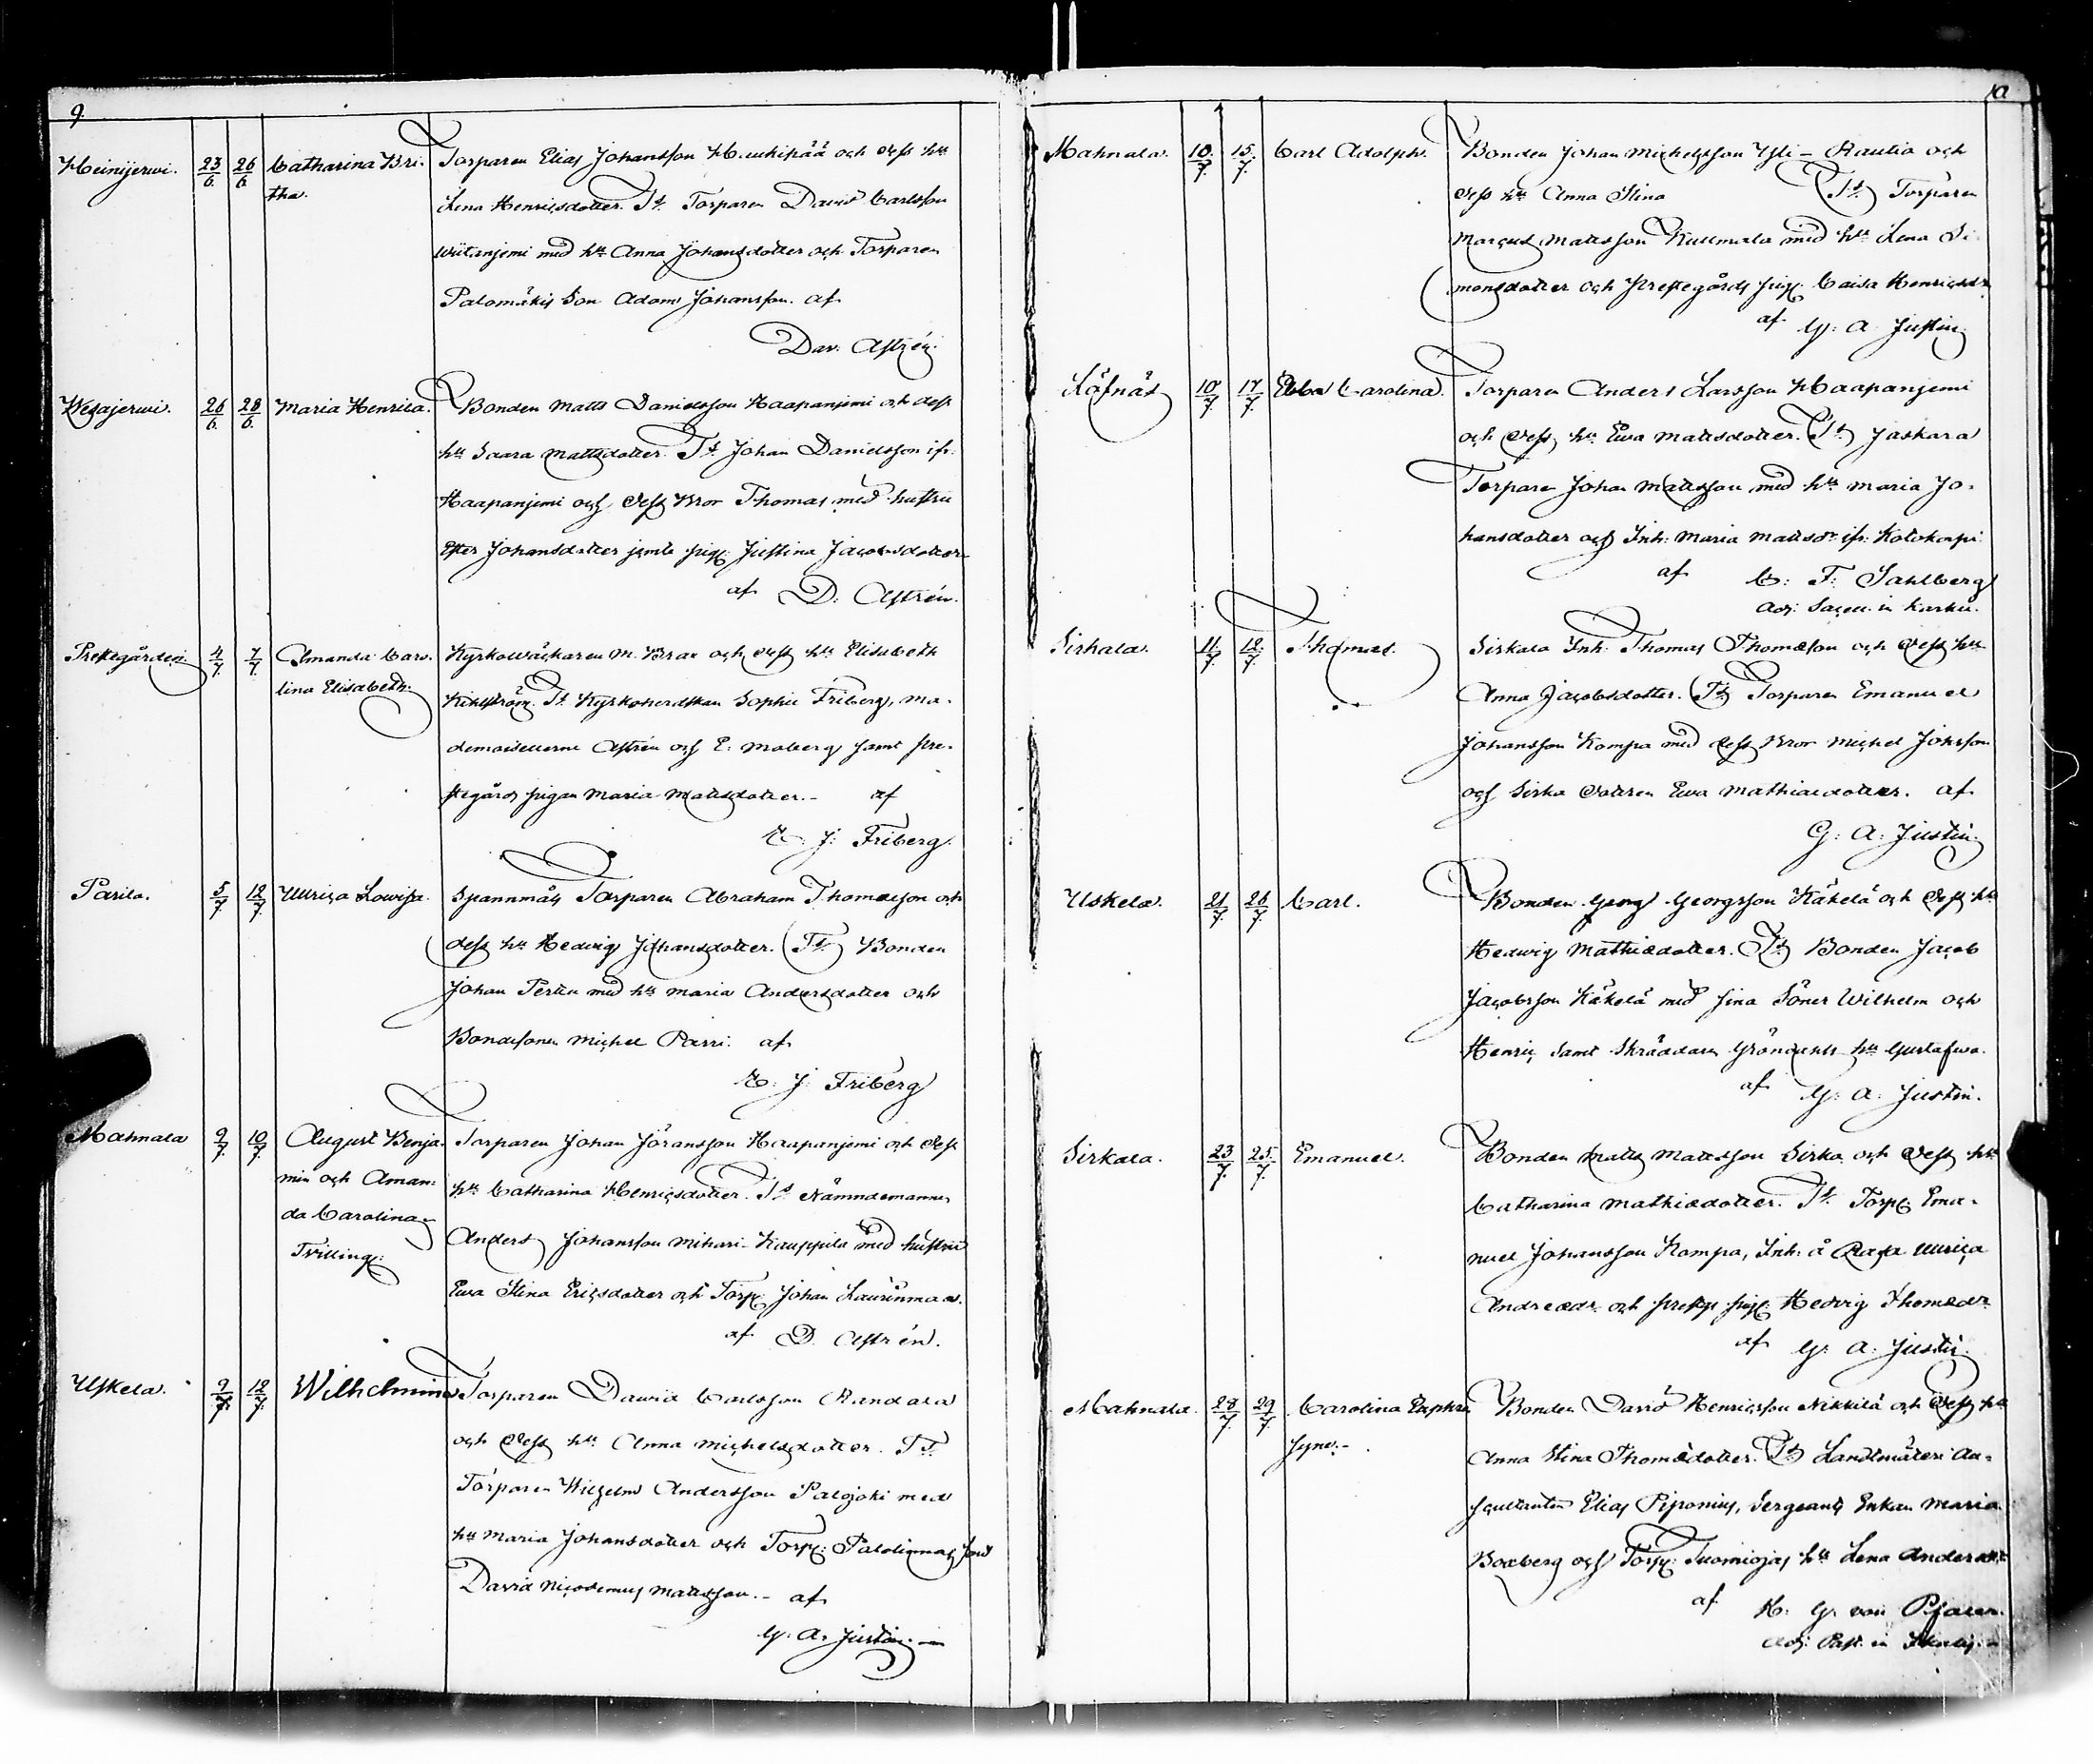 9.
Heinijerwi. 23/6. 26/6. Catharina Bri- Torparen Elias Johansson Hauhipää och dess hu
tha. Lena Henricsdotter. Tt. Torparen David Carlsson
Wiitanjemi med hu Anna Johansdotter och Torparen
Palomäkis Son Adam Johansson. af
Dav. Astrén.
Wesajerwi. 26/6. 28/6. Maria Henrica. Bonden Matts Danielsson Haapanjemi och dess
hu Saara Mattsdotter. Tt. Johan Danielsson ifr.
Haapanjemi och dess Bror Thomas med hustru
Ester Johansdotter jemte pig: Justina Jacobsdotter
af D. Astrén.
Prestegården. 4/7. 7/7. Amanda Caro- Kyrkowäcktaren M. Brax och dess hu Elisabeth
lina Elisabeth. Kihlström. Tt. Kyrkoherdskan Sophie Friberg, Ma-
demoisellerne Astrén och E: Moberg samt pre-
stegårds pigan Maria Mattsdotter.- af
E. J: Friberg.
Parila. 5/7. 12/7. Ullrica Lowisa. Spannmåls Torparen Abraham Thomasson och
dess hu Hedvig Johansdotter. Tt. Bonden
Johan Perttu med hu Maria Andersdotter och
Bondesonen Michel Parri. af
E. J. Friberg
Mahnala 9/7. 10/7. August Benja- Torparen Johan Göransson Haapanjemi och dess
min och Aman- hu Catharina Henricsdotter. Tt. Nämndemannen
da Carolina Anders Johansson Mihari-Kauppila med hustru
Tvilling: Ewa Stina Ericsdotter och Torp: Johan Laurinmaa.
af D. Astrén.
Uskela. 9/7. 12/7. Wilhelmina Torparen Dawid Carlsson Randala
och dess hu Anna Michelsdotter. Tt.
Torparen Wilhelm Andersson Palojoki med
hu Maria Johansdotter och Torp: Palolinmas son
David Nicodemus Mattsson.- af
G. A. Justin.
10
Mahnala. 10/7. 15/7. Carl Adolph. Bonden Johan Michelsson Yli-Rautia och
dess hu Anna Stina Tt. Torparen
Marcus Mattsson Kullmala med hu Lena Si-
monsdotter och prestegårds pig: Caisa Henricsdr
af G: A. Justin.
Löfnäs 10/7. 17/7. Ebba Carolina. Torparen Anders Larsson Haapanjemi
och dess hu Ewa Mattsdotter. Tt. Jaskara
Torpare Johan Mattsson med hu Maria Jo-
hansdotter och Inh: Maria Mattsdr ifr: Kolokorpi
af C. F. Sahlberg
Adj: Sacell: in Karku.
Sirkala. 11/7. 12/7. Thomas. Sirkala Inh: Thomas Thomasson och dess hu
Anna Jacobsdotter. Tt. Torparen Emanuel
Johansson Kompa med dess Bror Michel Johsson
och Sirka dottren Ewa Mathiaedotter. af
G: A: Justin.
Uskela. 21/7. 26/7. Carl. Bonden Georg Georgsson Käkelä och dess hu
Hedwig Mathiedotter. Tt. Bonden Jacob
Jacobsson Käkelä med sina Söner Wilhelm och
Henric samt Skräddaren Gröndahls hu Gustafwa.
af G: A: Justin.
Sirkala. 23/7. 25/7. Emanuel. Bonden Matts Mattsson Sirka och dess hu
Catharina Mathiedotter. Tt. Torp: Ema-
nuel Johansson Kompa, Inh: å Ullrica
Andreaedr och prestg: pig: Hedvig Thomaedr
af G. A. Justin.
Mahnala. 28/7. 29/7. Carolina Euphro- Bonden David Henricsson Nikkilä och dess hu
syne.- Anna Stina Thomædotter. Tt. Landtmäteri Au-
scultanten Elias Piponius, Sergeants Enkan Maria
Boxberg och Torp: Tuomiojas hu Lena Andersdr
af H: G. von Pfaler.
Adj: Past: in